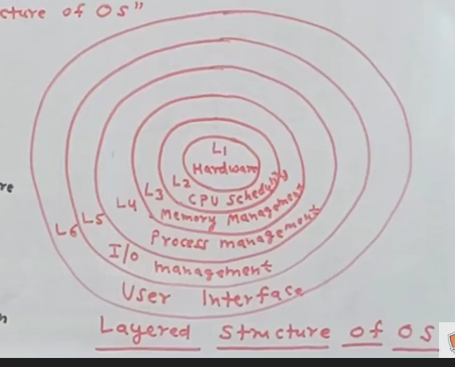 cture of OS"
L1
Hardware
L2
CPU Scheduling
L3
Memory Management
L4
Process management
L5
I/o management
L6
User Interface
Layered Structure of OS